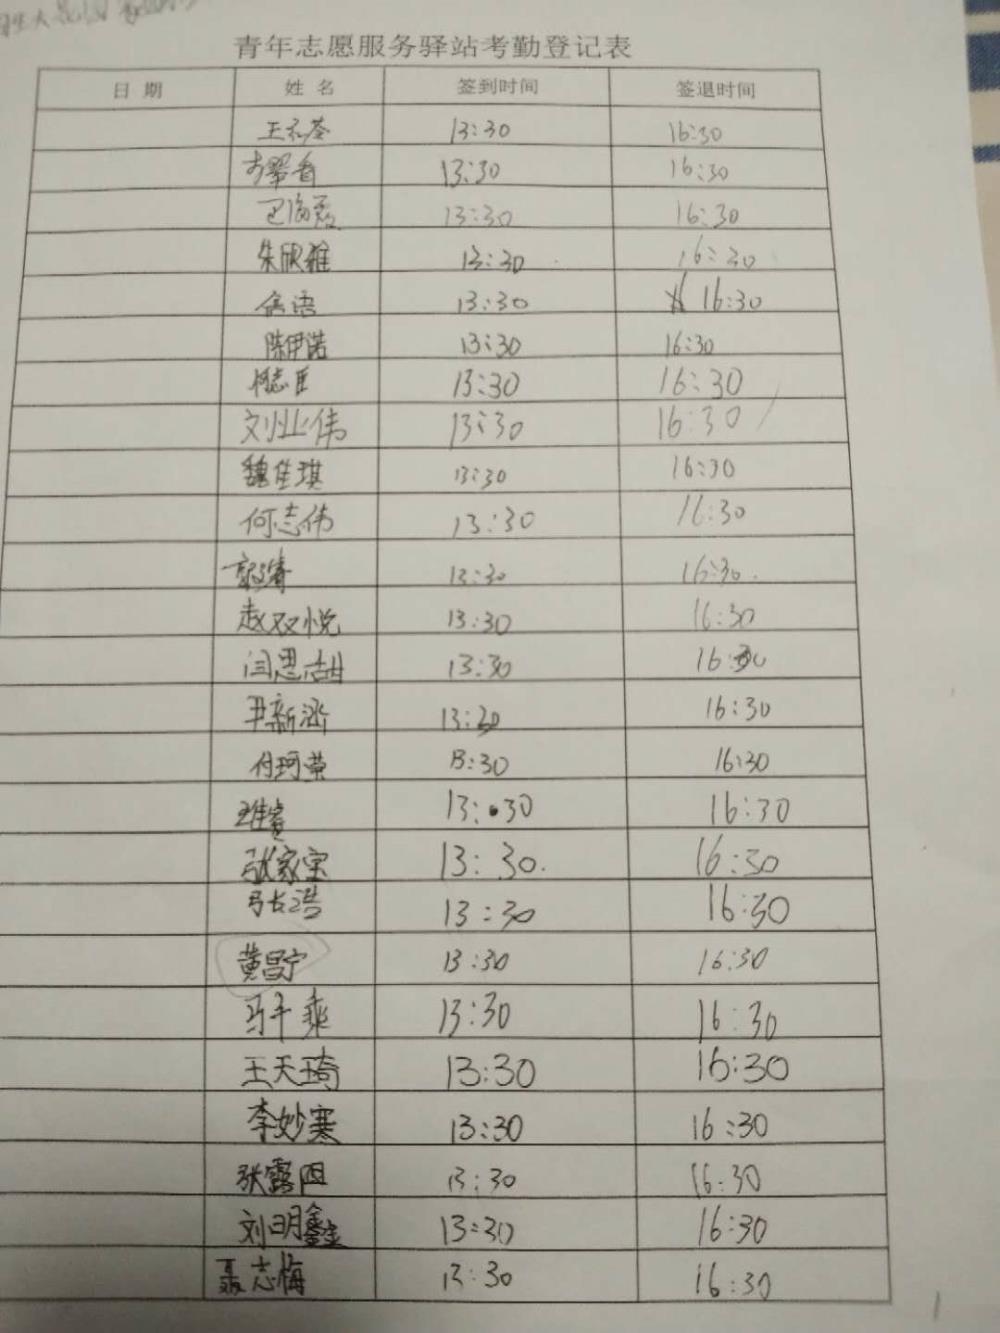 青年志愿服务驿站考勤登记表
日期 姓名 签到时间 签退时间
13:30 16:30
13:30 16:30
13:30 16:30
朱欣雅 13:30 16:30
13:30 16:30
陈伊诺 13:30 16:30
13:30 16:30
刘业伟 13:30 16:30
魏佳琪 13:30 16:30
何志伟 13:30 16:30
13:30 16:30
赵双悦 13:30 16:30
闫思喆 13:30 16:30
尹新涵 13:30 16:30
付珂荣 13:30 16:30
13:30 16:30
张家宝 13:30 16:30
13:30 16:30
黄昌宁 13:30 16:30
马千乘 13:30 16:30
王天琦 13:30 16:30
李妙寒 13:30 16:30
张露阳 13:30 16:30
刘明鑫 13:30 16:30
聂志梅 13:30 16:30